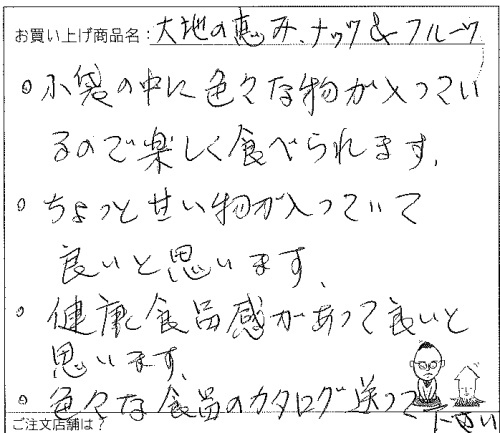 お買い上げ商品名：大地の恵み、ナッツ&フルーツ
○小袋の中に色々な物が入ってい
るので楽しく食べられます。
○ちょっと甘い物が入っていて
良いと思います。
○健康食品感があって良いと
思います。
○色々な食品のカタログ送って
下さい
ご注文店舗は？